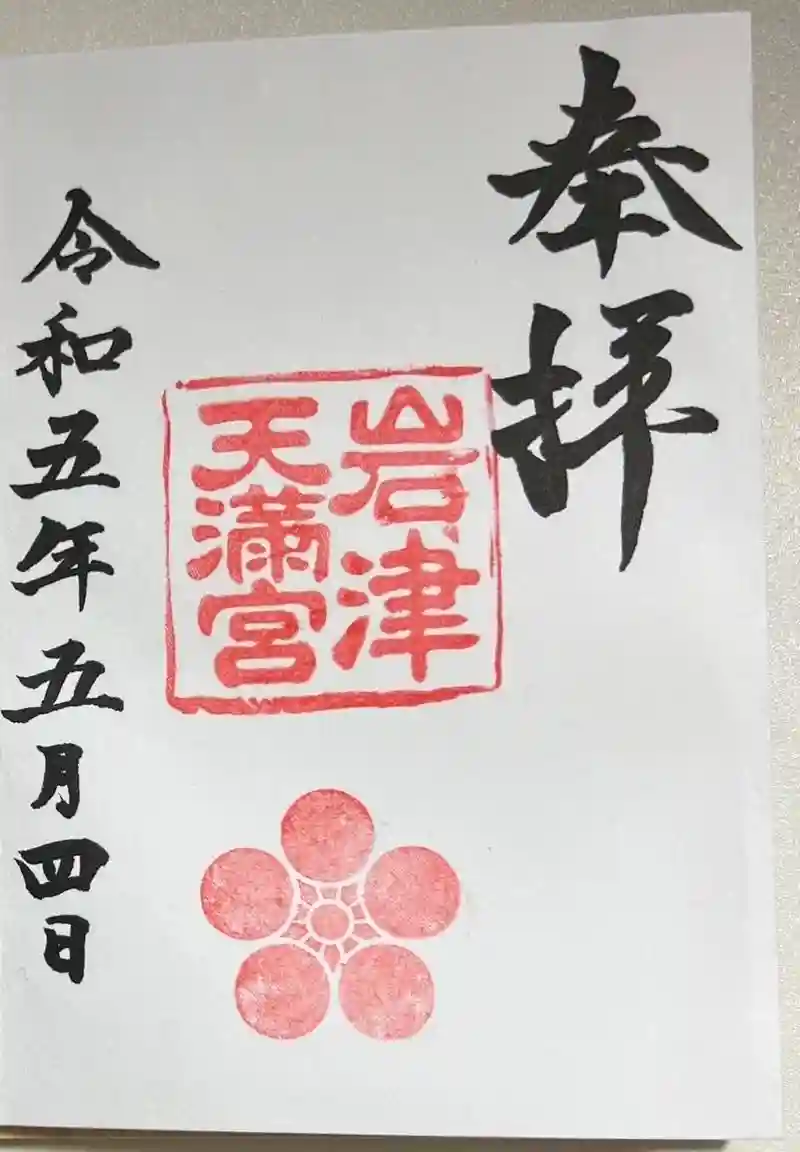 奉拝
岩津
天満宮
令和五年五月四日